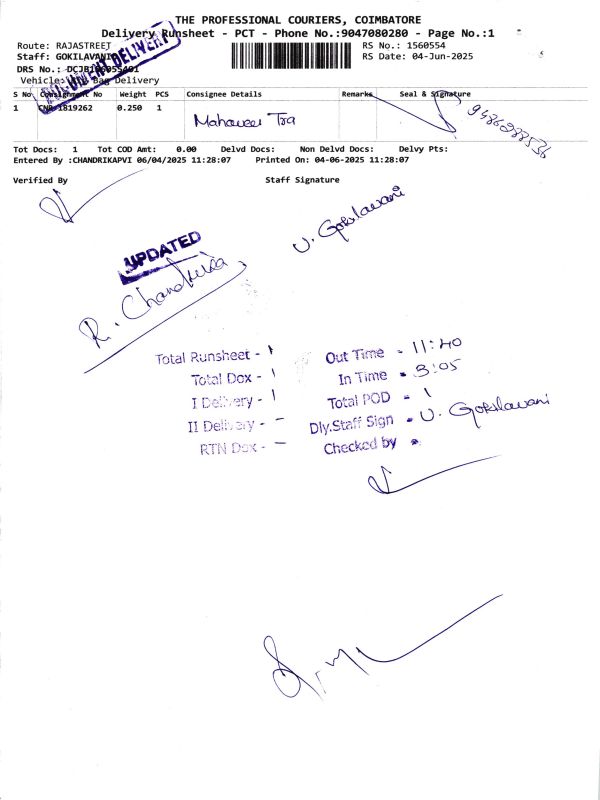 THE PROFESSIONAL COURIERS, COIMBATORE
Delivery Runsheet - PCT - Phone No.:9047080280 - Page No.:1
Route: RAJASTREET RS No.: 1560554
Staff: GOKILAVANI RS Date: 04-Jun-2025
DRS No.:
DOCUMENT DELIVERY
Vehicle: Bag Delivery
S No Consignment No Weight PCS Consignee Details Remarks Seal & Signature
1 1819262 0.250 1 Mahaveer
Tot Docs: 1 Tot COD Amt: 0.00 Delvd Docs: Non Delvd Docs: Delvy Pts:
Entered By :CHANDRIKAPVI 06/04/2025 11:28:07 Printed On: 04-06-2025 11:28:07
Verified By Staff Signature
U. Gokilavani
UPDATED
R. Chandrika
Total Runsheet - 1 Out Time - 11:40
Total Dox - 1 In Time - 3:05
I Delivery - 1 Total POD - 1
II Delivery - – Dly.Staff Sign - U. Gokilavani
RTN Dox - – Checked by -